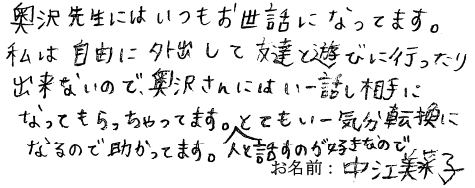 奥沢先生にはいつもお世話になってます。
私は自由に外出して友達と遊びに行ったり
出来ないので、奥沢さんにはいー話し相手に
なってもらっちゃってます。とてもいー気分転換に
なるので助かってます。人と話すのが好きなので
お名前：中江美菜子